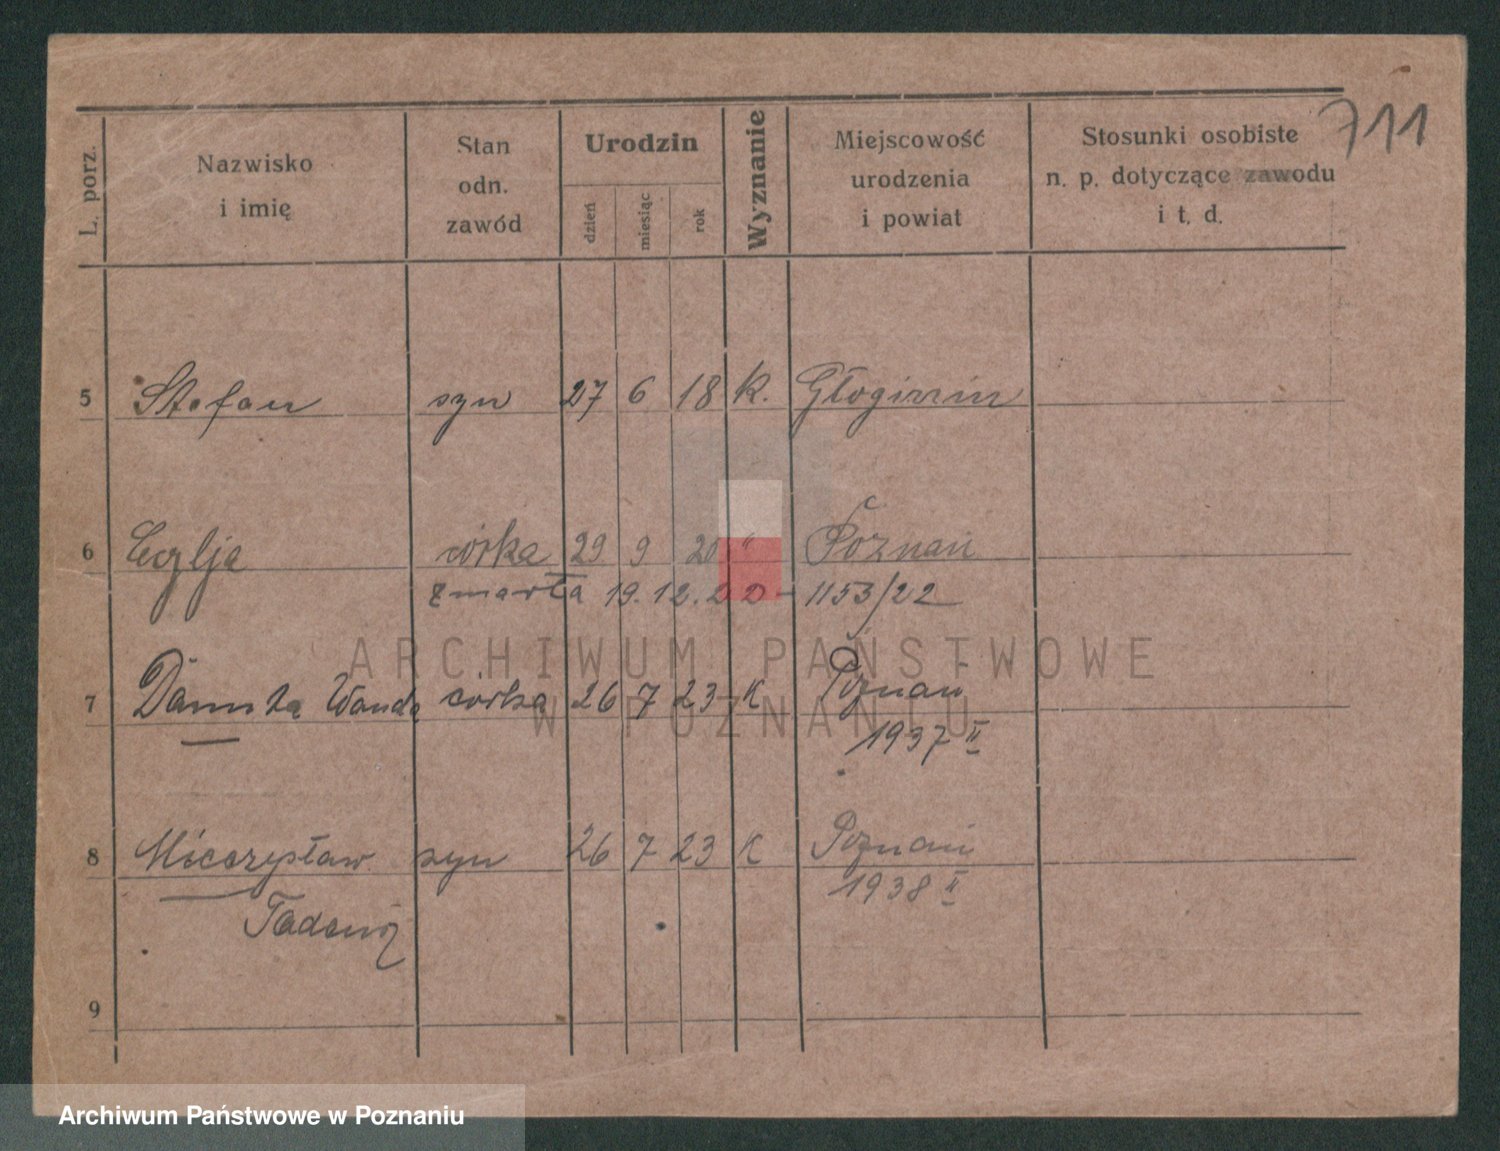 711
L. porz.
Nazwisko
i imię
Stan
odn.
zawód
Urodzin
dzień
miesiąc
rok
Wyznanie
Miejscowość
urodzenia
i powiat
Stosunki osobiste
n. p. dotyczące zawodu
i t. d.
5 Stefan syn 27 6 18 K.
6 córka 29 9 20 " Poznań
zmarła 19.12.22 - 1153/22
7 Danuta Wanda córka 26 7 23 K Poznań
1937 II
8 Mieczysław syn 26 7 23 K Poznań
1938 II
Tadeusz
9
ARCHIWUM PAŃSTWOWE
W POZNANIU
Archiwum Państwowe w Poznaniu